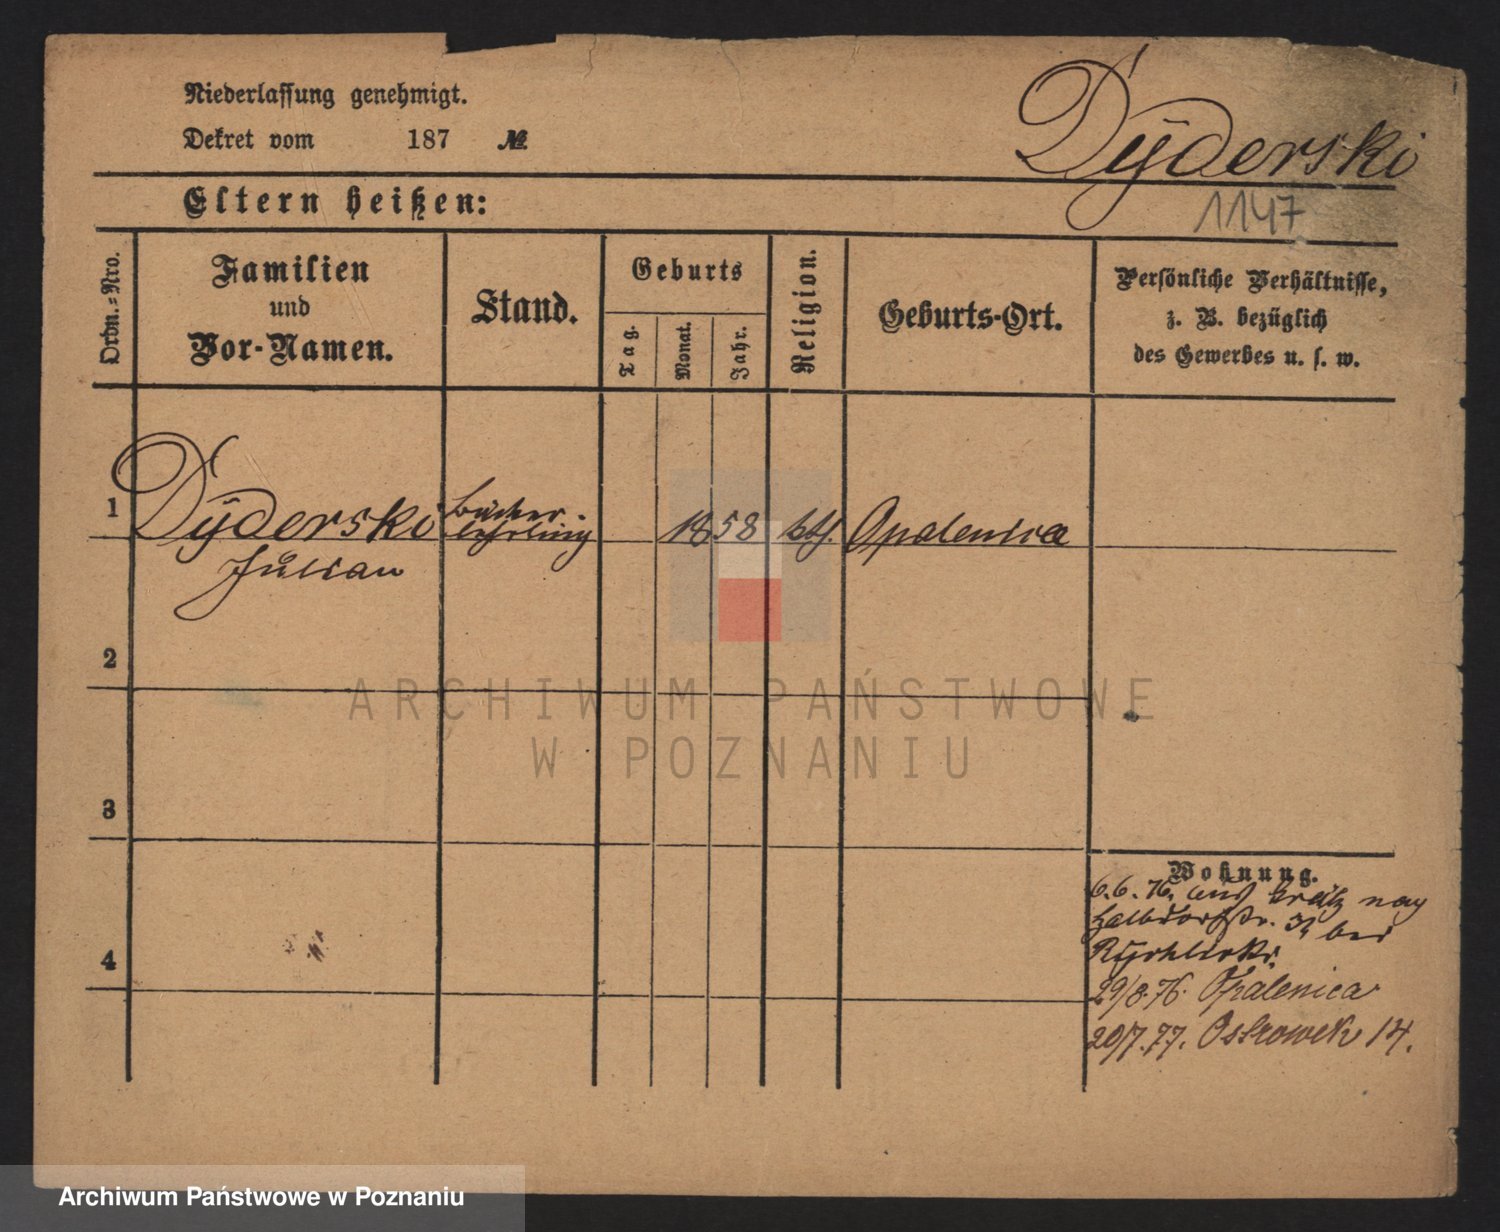 Niederlassung genehmigt.
Dekret vom 187 №
Dÿderski
1147
Eltern heißen:
Ordn.=Nro.
Familien
und
Vor-Namen.
Stand.
Geburts
Tag.
Monat.
Jahr.
Religion.
Geburts-Ort.
Persönliche Verhältnisse,
z. B. bezüglich
des Gewerbes u. s. w.
1
Dÿderski
Julian
lehrling
1858
kth.
Opalenica
2
ARCHIWUM PAŃSTWOWE
W POZNANIU
3
Wohnung.
6.6.76. aus
Halbdorfstr. bei
4
29/8.76. Opalenica
20/7.77. Ostrowek 14.
Archiwum Państwowe w Poznaniu